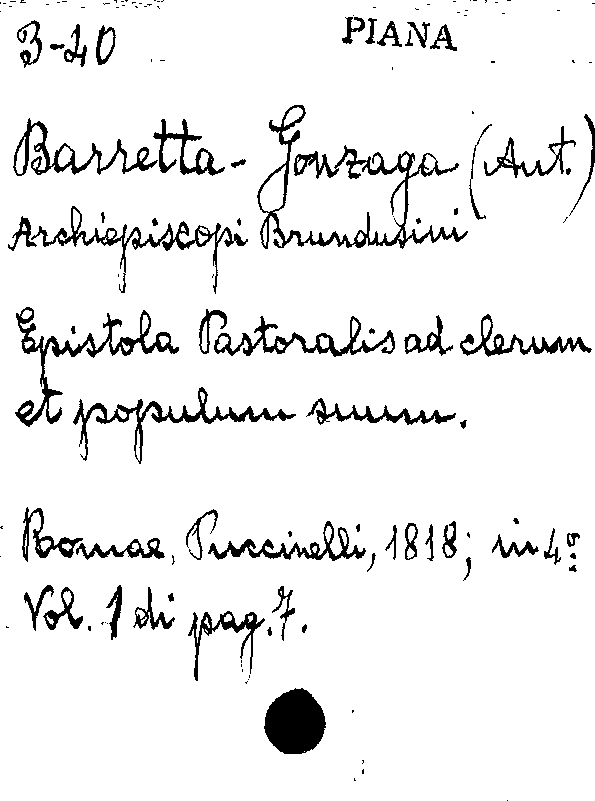 3-20 PIANA
Barretta-Gonzaga (Ant.)
Archiepiscopi Brundusini
Epistola Pastoralis ad clerum
et populum suum.
Romae, Puccinelli, 1818; in 4º
Vol. 1 di pag. 7.